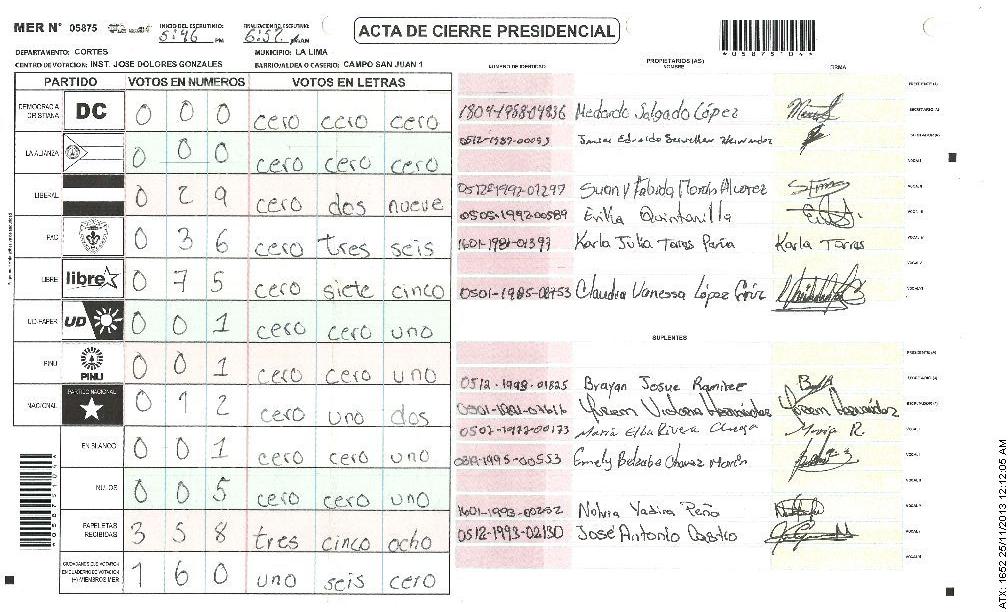 MER N° 05875 INICIO DEL ESCRUTINIO: 5:46 PM FINALIZACION DE ESCRUTINIO: 6:52 AM
ACTA DE CIERRE PRESIDENCIAL
*05875104*
DEPARTAMENTO: CORTES MUNICIPIO: LA LIMA
CENTRO DE VOTACION: INST. JOSE DOLORES GONZALES BARRIO/ALDEA O CASERIO: CAMPO SAN JUAN 1
PARTIDO VOTOS EN NUMEROS VOTOS EN LETRAS
DEMOCRACIA CRISTIANA DC 0 0 0 cero cero cero
LA ALIANZA 0 0 0 cero cero cero
LIBERAL 0 2 9 cero dos nueve
PAC 0 3 6 cero tres seis
LIBRE libre 0 7 5 cero siete cinco
UD-FAPER UD 0 0 1 cero cero uno
PINU PINU 0 0 1 cero cero uno
NACIONAL PARTIDO NACIONAL 0 1 2 cero uno dos
EN BLANCO 0 0 1 cero cero uno
NULOS 0 0 5 cero cero uno
PAPELETAS RECIBIDAS 3 5 8 tres cinco ocho
CIUDADANOS QUE VOTARON EN CUADERNO DE VOTACION (+) MIEMBROS MER 1 6 0 uno seis cero
PROPIETARIOS (AS)
NUMERO DE IDENTIDAD NOMBRE FIRMA
PRESIDENTE (A)
1804-1968-04836 Medardo Salgado López SECRETARIO (A)
0512-1987-00093 Eduardo ESCRUTADOR (A)
VOCAL I
0512-1992-01297 Suany Fabiola Morán Alvarez VOCAL II
0505-1992-00589 Erika Quintanilla VOCAL III
1601-1981-01397 Karla Julia Torres Peña Karla Torres VOCAL IV
VOCAL V
0501-1985-08753 Claudia Vanessa López Cruz VOCAL VI
SUPLENTES
PRESIDENTE (A)
0512-1993-01825 Brayan Josue Ramirez SECRETARIO (A)
Victoria Hernández Hernández ESCRUTADOR (A)
María Elba Rivera María R. VOCAL I
Emely Chavez VOCAL II
VOCAL III
1601-1993-00252 Nohvia Yadira Peña VOCAL IV
0512-1993-02130 José Antonio Castro VOCAL V
VOCAL VI
*05875104*
ATX: 1652 25/11/2013 12:12:05 AM